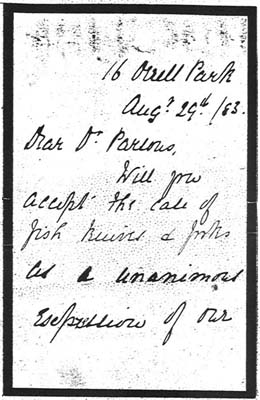 16 Orrell Park
Augt 29th /83.
Dear Dr Parsons,
Will you
accept the case of
fish knives & forks
as a unanimous
Expression of our